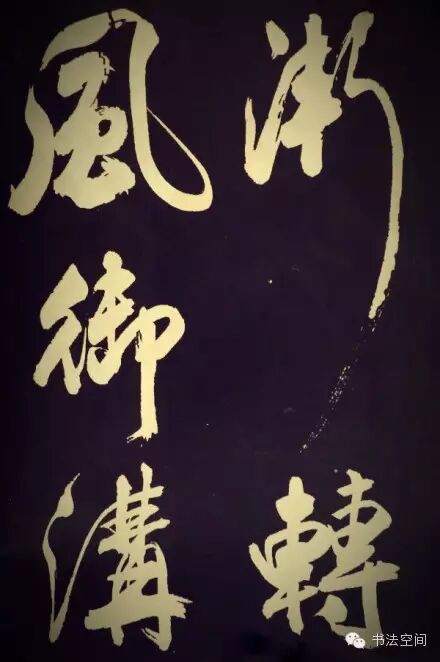 漸轉
風御溝
书法空间